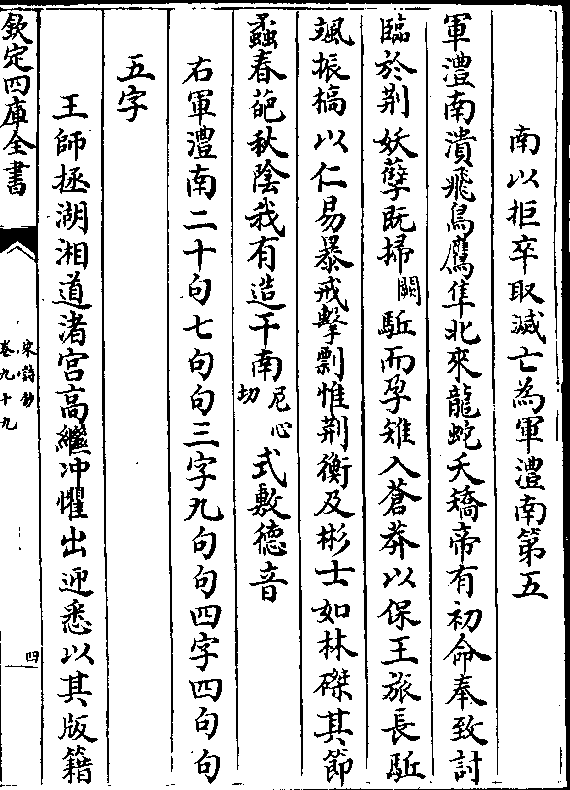 南以拒卒取滅亡為軍澧南第五
軍澧南潰飛鳥鷹隼北來龍蛇夭矯帝有初命奉致討
臨於荆妖孽既掃闕駈而孕雉入蒼莽以保王旅長駈
颯振槁以仁易暴戒擊剽惟荆衡及彬士如林磔其節
蟊春葩秋陰我有造于南尼心切式敷德音
右軍澧南二十句七句句三字九句句四字四句句
五字
王師拯湖湘道渚宫高繼冲懼出迎悉以其版籍
欽定四庫全書
宋詩鈔
卷九十九
四